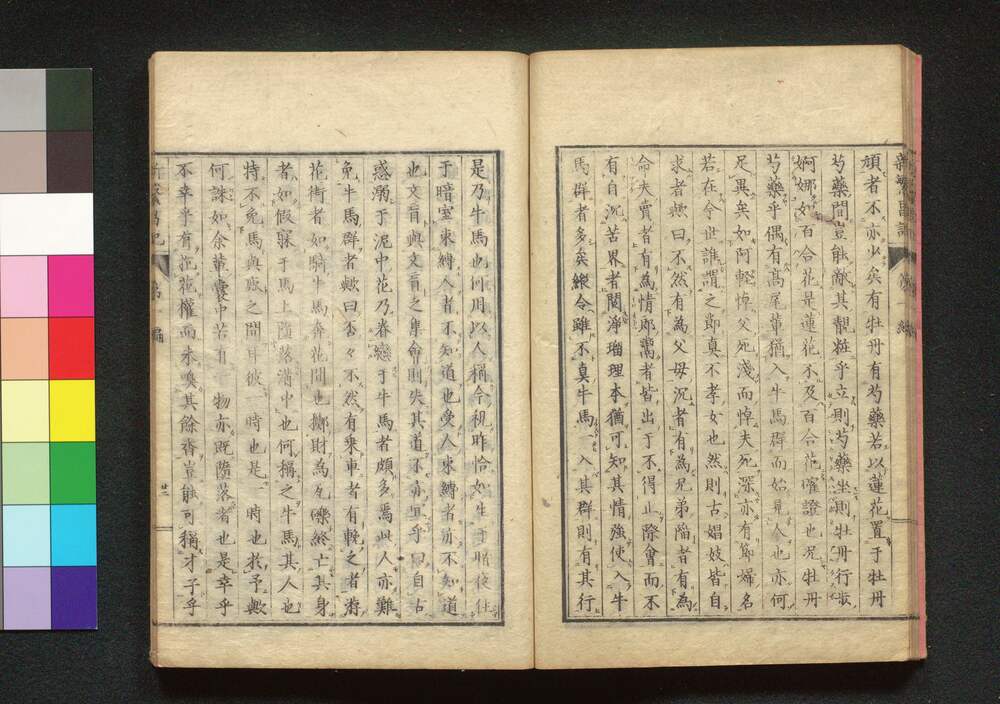 頏者不亦少矣有牡丹有芍藥若以蓮花置于牡丹
芍藥間豈能敵其靚粧乎立則芍藥坐則牡丹行步
婀娜如百合花是蓮花不及百合花確證也況牡丹
芍藥乎偶有高尾輩猶入牛馬群而始見人也亦何
足異矣如阿輕悼父死淺而悼夫死深亦有節婦名
若在今世誰謂之節真不孝女也然則古娼妓皆自
求者歟曰不然有為父母沉者有為兄弟陷者有為
命夫賣者有為情郎鬻者皆出于不得止際會而不
有自沉苦界者閱淨瑠理本猶可知其情強使入牛
馬群者多矣縱令雖不真牛馬一入其群則有其行
是乃牛馬也何用以人稱今視昨恰如生于暗夜住
于暗室束縛人者不知道也受人束縛者亦不知道
也文盲與文盲之集會則失其道不亦宜乎曰自古
惑溺于泥中花乃眷戀于牛馬者頗多焉此人亦難
免牛馬群者歟曰否々不然有乘車者有輓之者游
花街者如騎牛馬奔花間也擲財為瓦礫終亡其身
者如假寐于馬上墮落溝中也何稱之牛馬其人也
特不免馬與豚之間耳彼一時也是一時也於予歟
何誅如余囊中苦有物亦既墮落者也是幸乎
不幸乎有花權而未喚其餘香豈能可稱才子乎
第一編
廿二